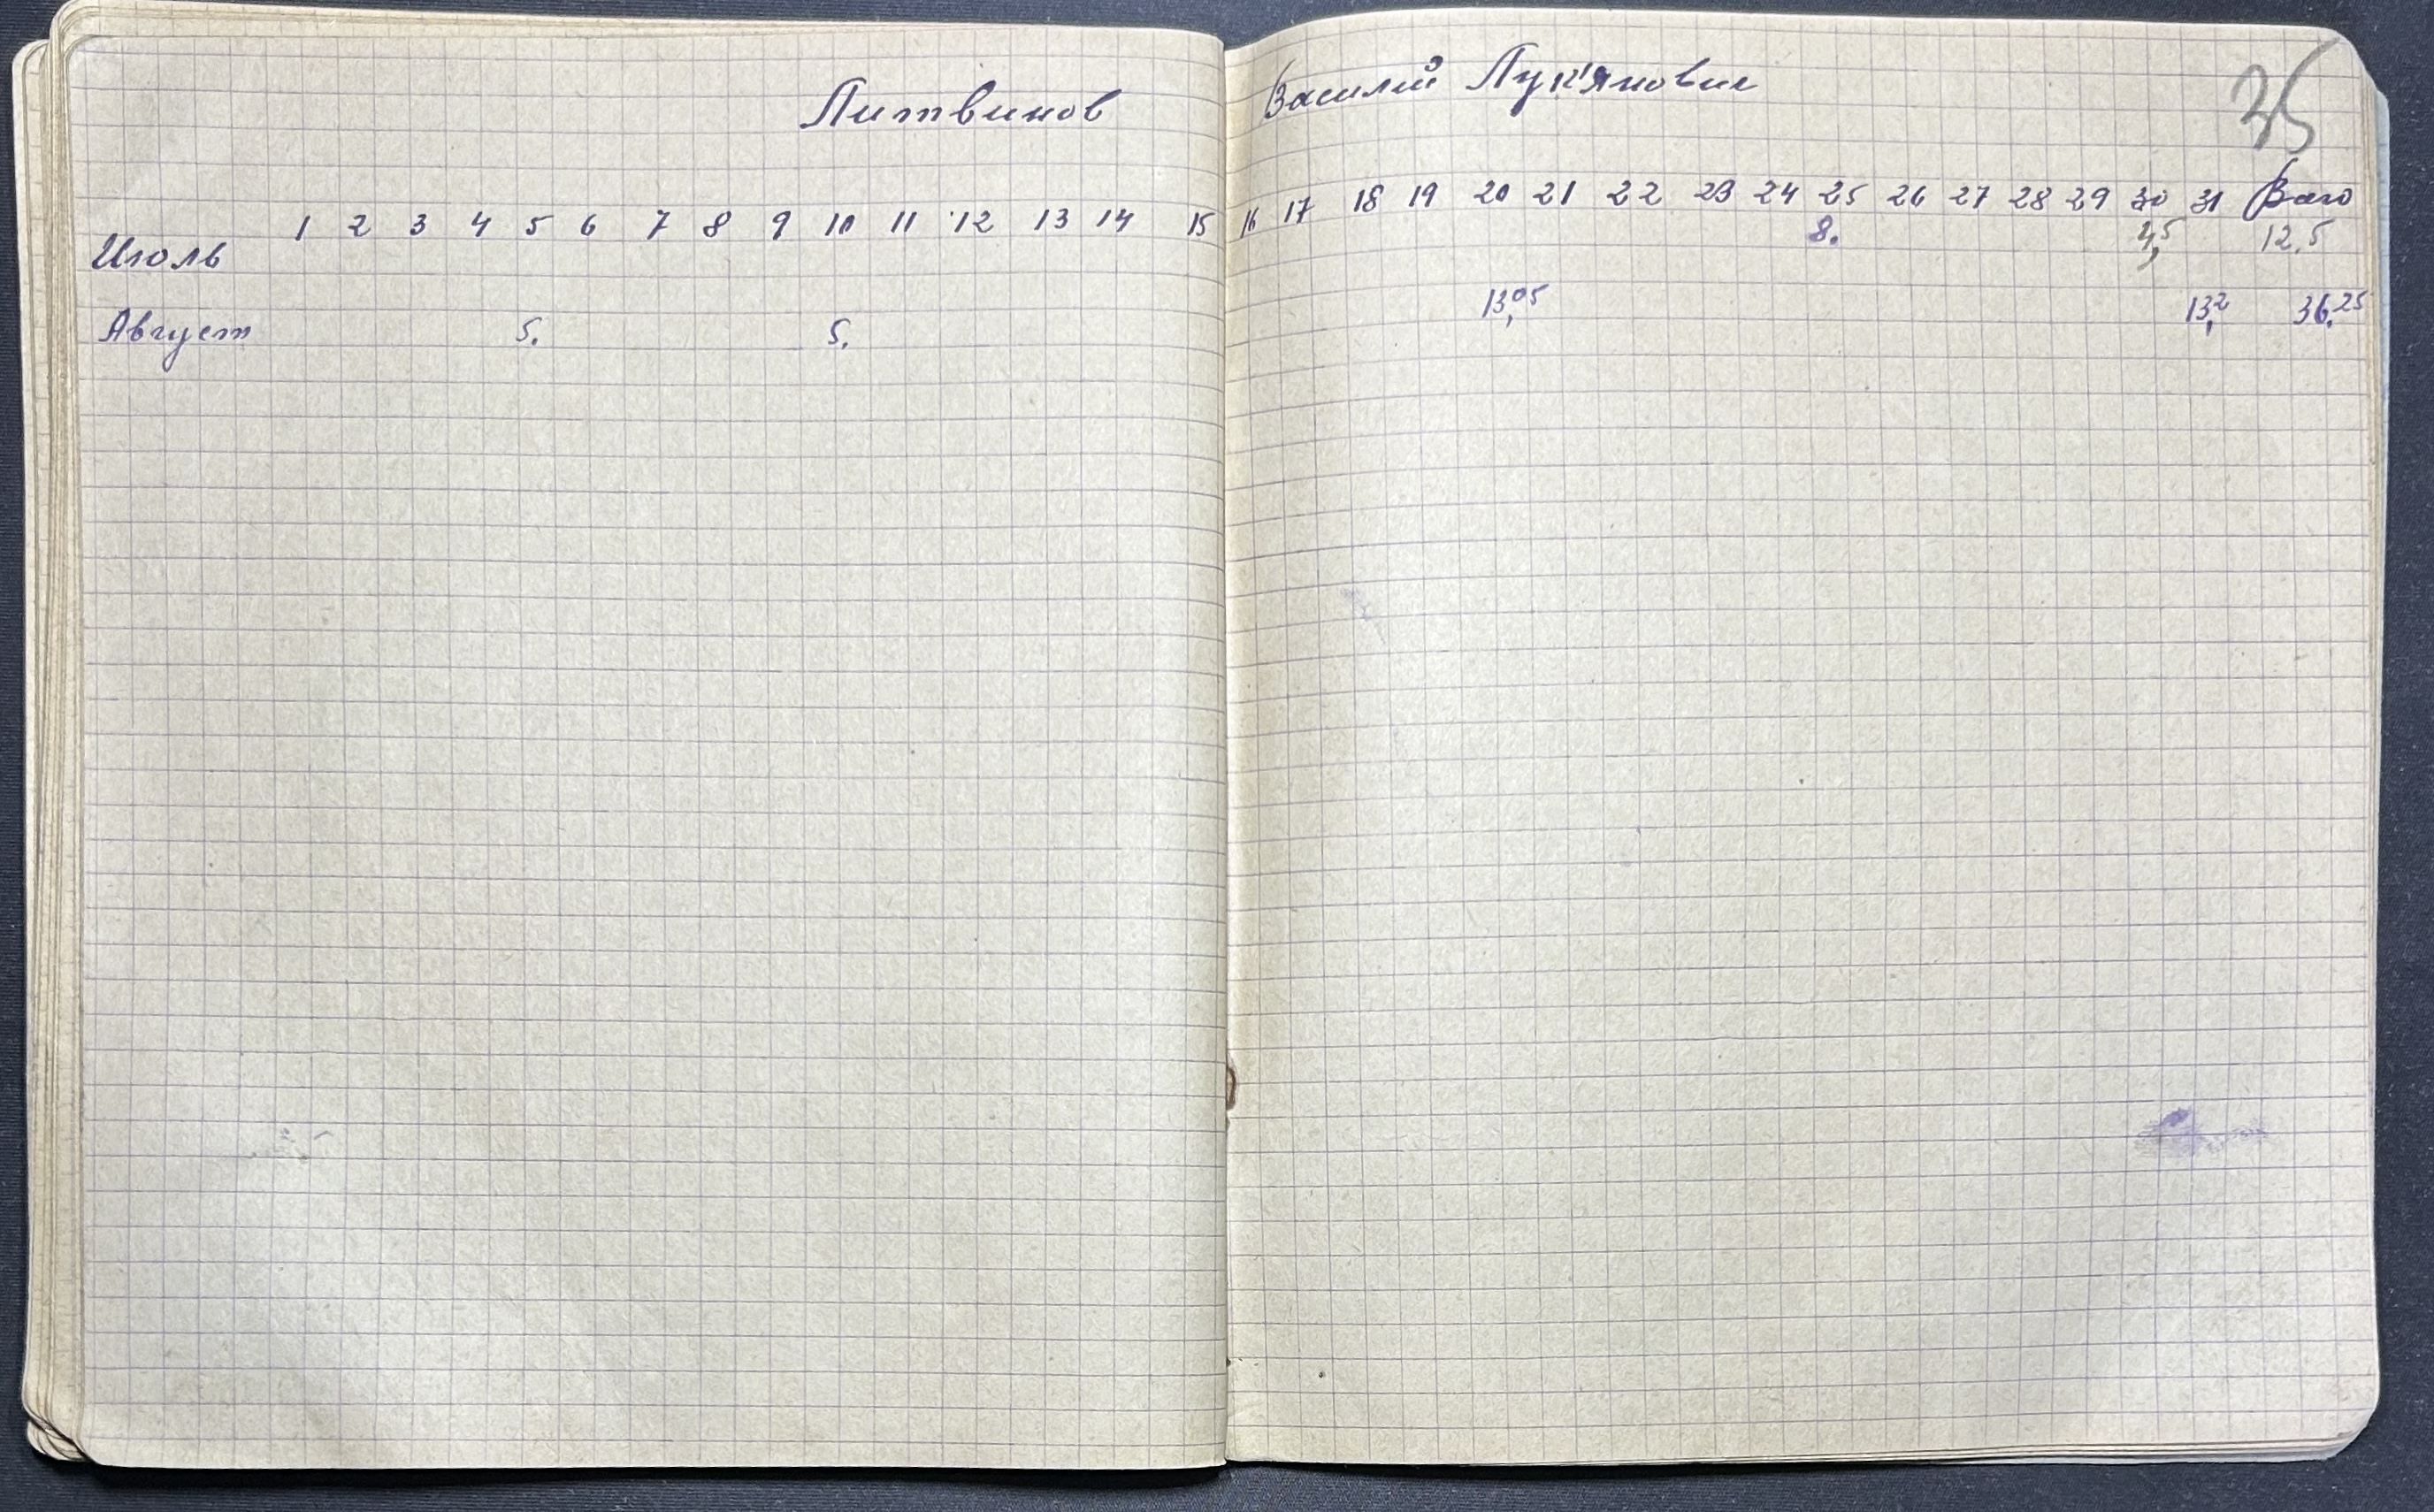 Литвинов Василий Лук'янович
35
1 2 3 4 5 6 7 8 9 10 11 12 13 14 15 16 17 18 19 20 21 22 23 24 25 26 27 28 29 30 31 Всего
Июль 8. 4,5 12.5
Август 5. 5. 13,05 13,2 36,25